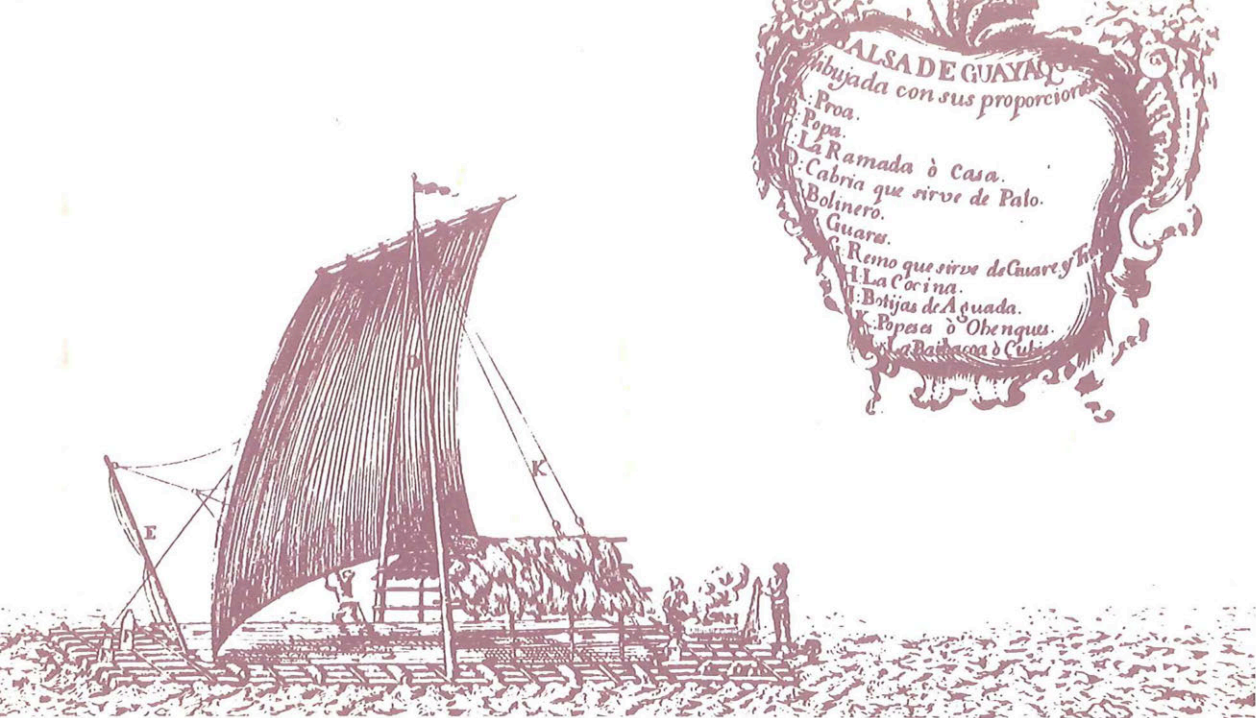 BALSA DE GUAYAQ
dibujada con sus proporciones
A. Proa.
B. Popa.
C. La Ramada ò Casa.
D. Cabria que sirve de Palo.
Bolinero.
Guares.
G. Remo que sirve de Guare y
H. La Cocina.
I. Botijas de Aguada.
K. Popeses ò Obenques.
La Barbacoa ò
D
K
E